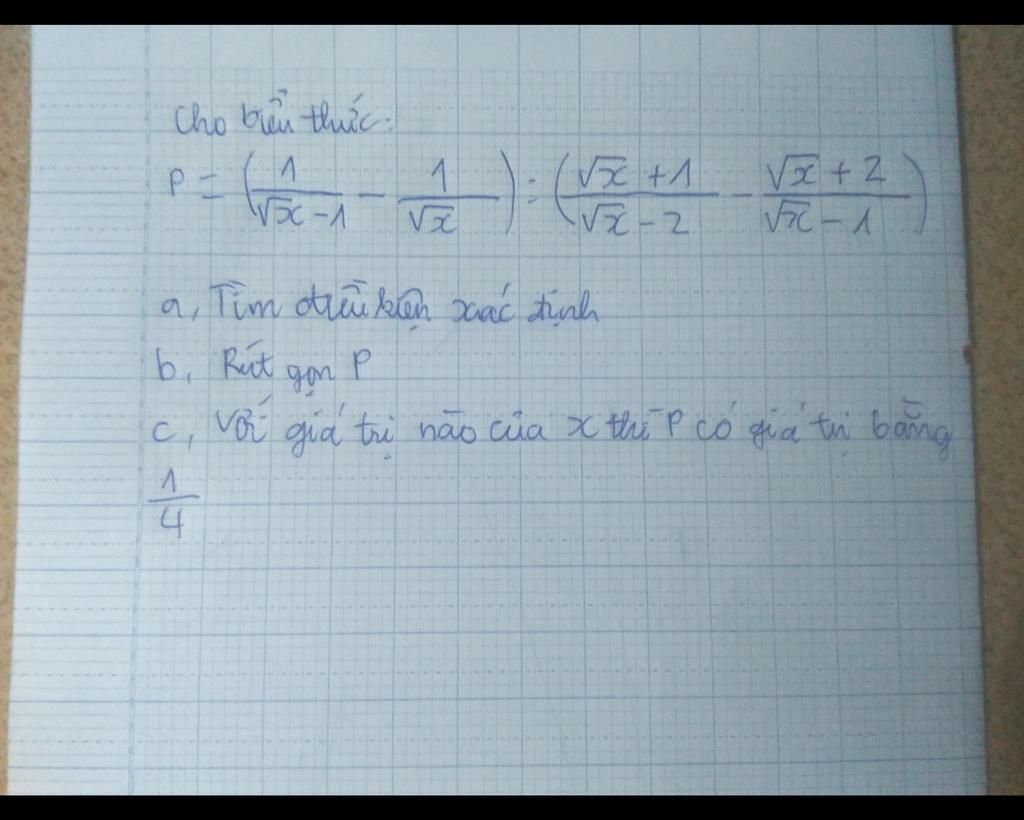 Cho biểu thức:
P = (\frac{1}{\sqrt{x}-1} - \frac{1}{\sqrt{x}}) : (\frac{\sqrt{x}+1}{\sqrt{x}-2} - \frac{\sqrt{x}+2}{\sqrt{x}-1})
a, Tìm điều kiện xác định
b, Rút gọn P
c, Với giá trị nào của x thì P có giá trị bằng
\frac{1}{4}